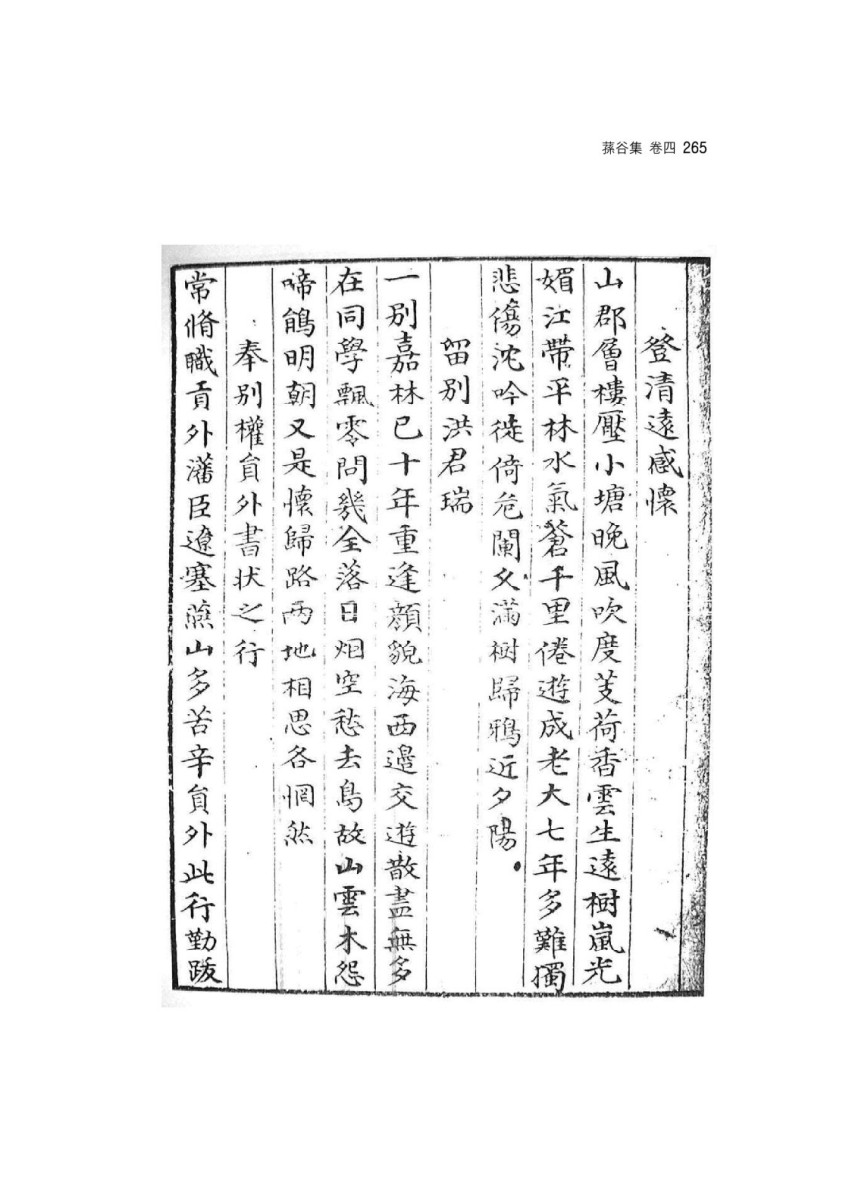 蓀谷集 卷四 265
登清遠感懷
山郡層樓壓小塘晩風吹度芰荷香雲生遠樹嵐光
媚江帶平林水氣蒼千里倦遊成老大七年多難獨
悲傷沈吟徙倚危闌久滿樹歸鴉近夕陽
留別洪君瑞
一別嘉林已十年重逢顔貌海西邊交遊散盡無多
在同學飄零問幾全落日烟空愁去鳥故山雲木怨
啼鵑明朝又是懷歸路兩地相思各惘然
奉別權員外書状之行
常脩職貢外藩臣遼塞燕山多苦辛員外此行勤跋